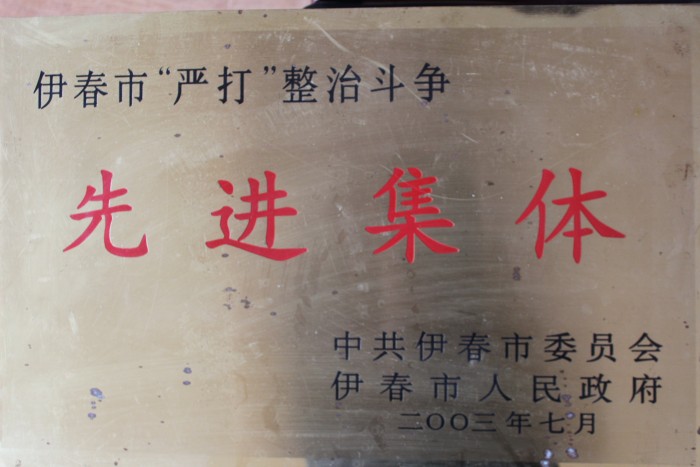 伊春市“严打”整治斗争
先进集体
中共伊春市委员会
伊春市人民政府
二〇〇三年七月